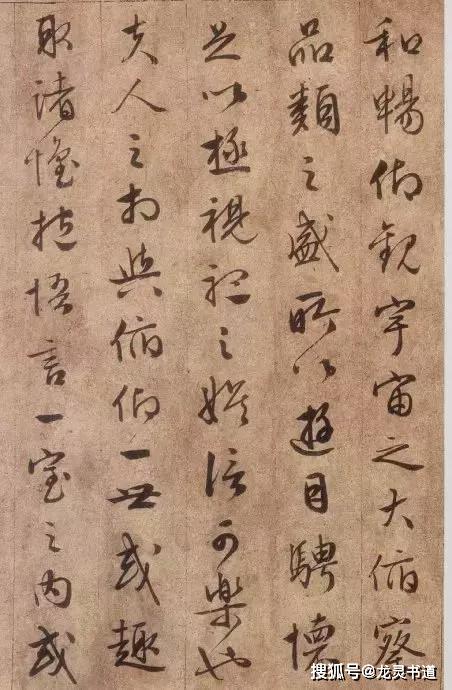 和暢仰觀宇宙之大俯察
品類之盛所以遊目騁懷
足以極視聽之娛信可樂也
夫人之相與俯仰一世或趣
取諸懷抱悟言一室之內或
搜狐号@龙灵书道